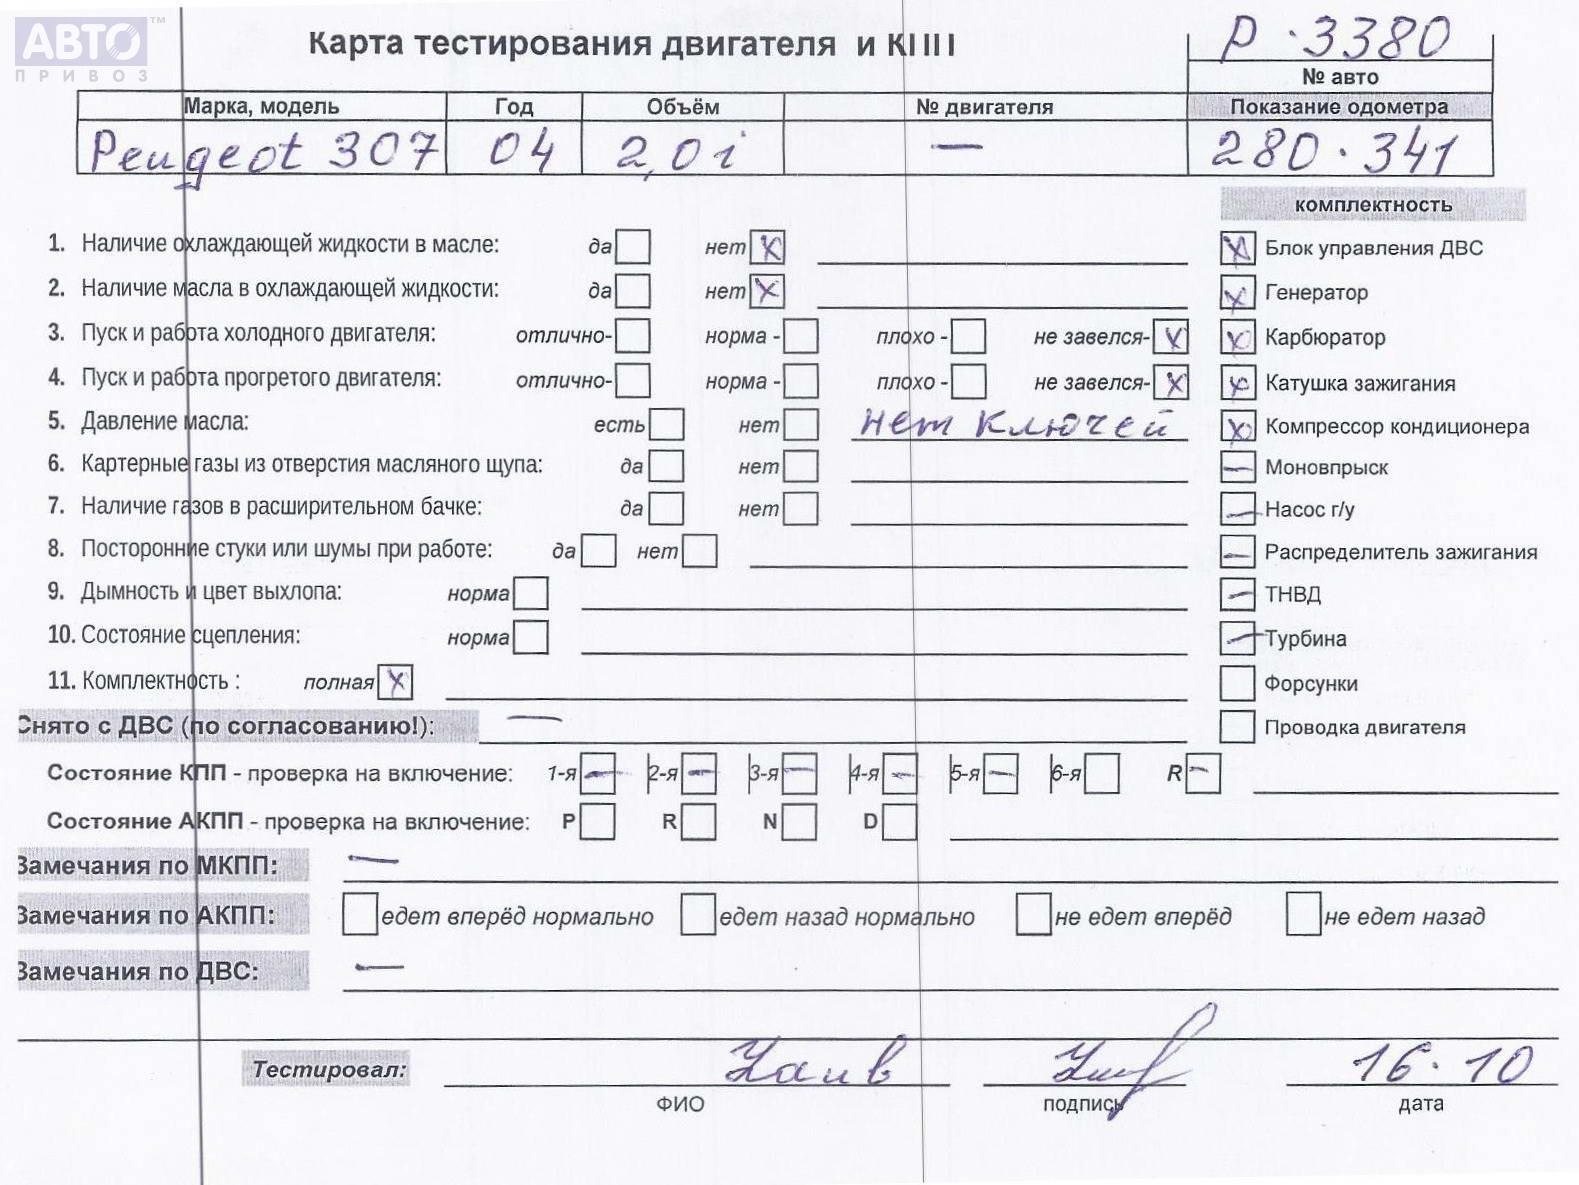 АВТО™
ПРИВОЗ
Карта тестирования двигателя и КПП
P·3380
№ авто
Марка, модель Год Объём № двигателя Показание одометра
Peugeot 307 04 2,0 i — 280·341
комплектность
1. Наличие охлаждающей жидкости в масле: да нет x
Блок управления ДВС
2. Наличие масла в охлаждающей жидкости: да нет x
Генератор
3. Пуск и работа холодного двигателя: отлично- норма - плохо - не завелся- x
Карбюратор
4. Пуск и работа прогретого двигателя: отлично- норма - плохо - не завелся- x
Катушка зажигания
5. Давление масла: есть нет нет ключей
Компрессор кондиционера
6. Картерные газы из отверстия масляного щупа: да нет
Моновпрыск
7. Наличие газов в расширительном бачке: да нет
Насос г/у
8. Посторонние стуки или шумы при работе: да нет
Распределитель зажигания
9. Дымность и цвет выхлопа: норма
ТНВД
10. Состояние сцепления: норма
Турбина
11. Комплектность : полная x
Форсунки
Снято с ДВС (по согласованию!): —
Проводка двигателя
Состояние КПП - проверка на включение: 1-я — 2-я — 3-я — 4-я — 5-я — 6-я R —
Состояние АКПП - проверка на включение: P R N D
Замечания по МКПП: —
Замечания по АКПП: едет вперёд нормально едет назад нормально не едет вперёд не едет назад
Замечания по ДВС: —
Тестировал: 16·10
ФИО подпись дата